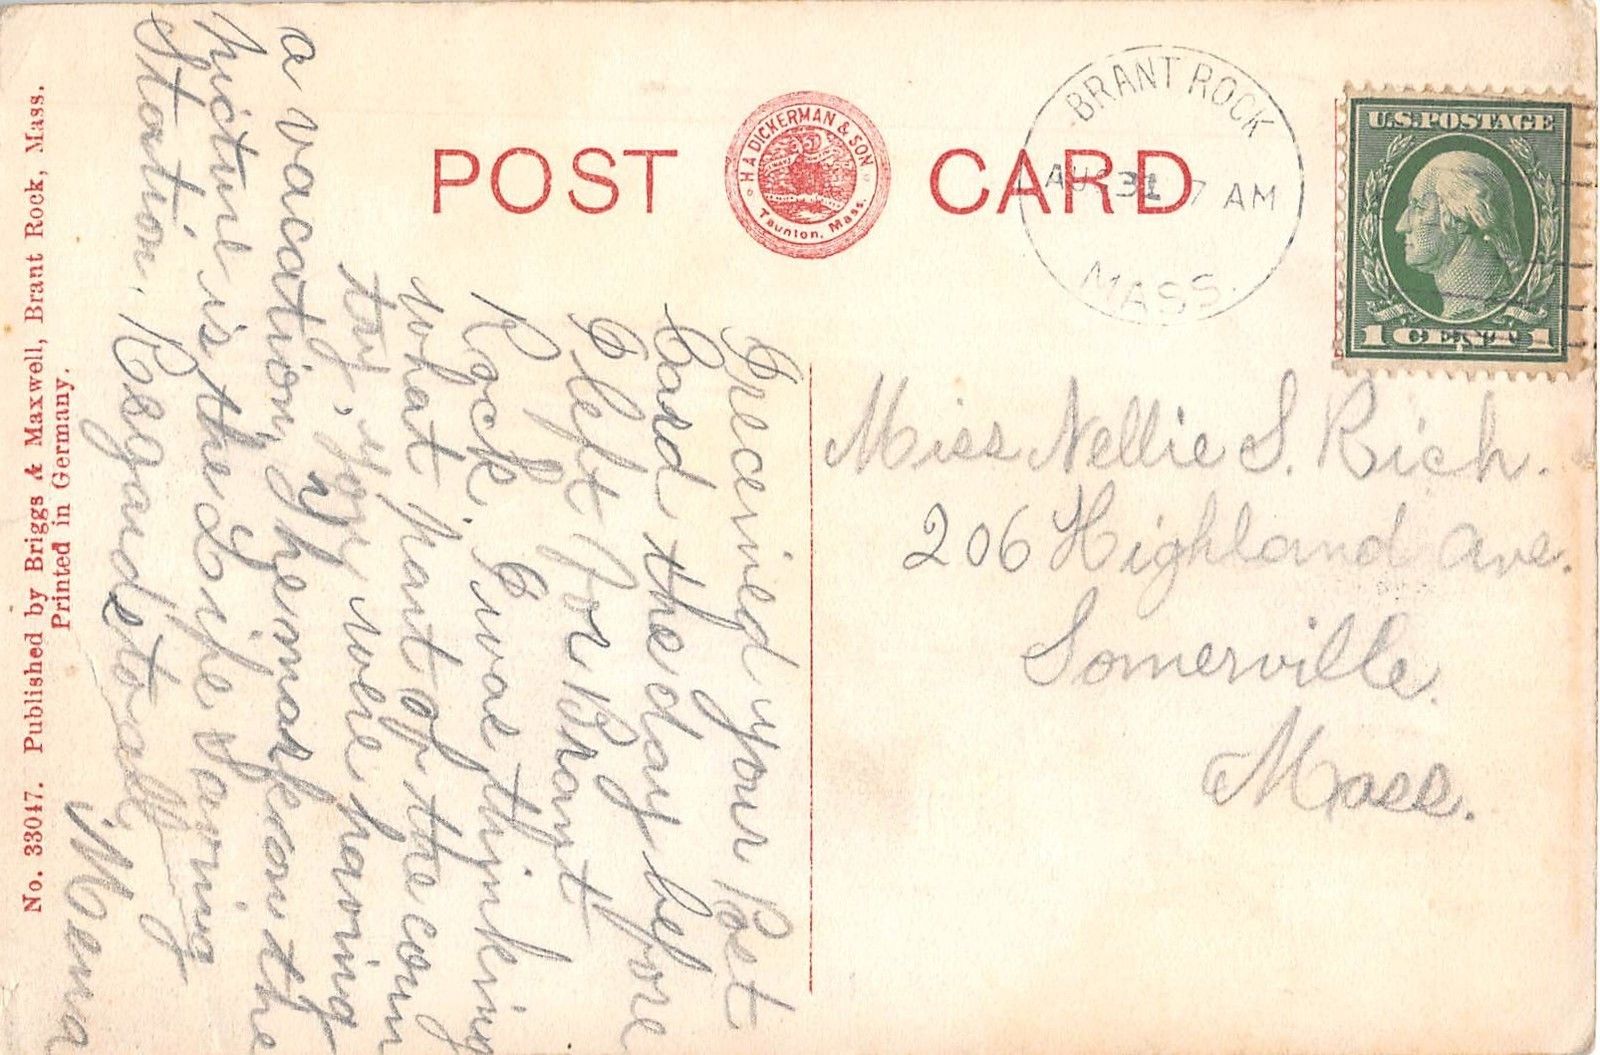 POST CARD
H A DICKERMAN & SON
Taunton, Mass.
BRANT ROCK
AU 31 7 AM
MASS.
U.S. POSTAGE
1 CENT 1
Miss Nellie S. Rich.
206 Highland Ave.
Somerville.
Mass.
I received your Post
Card the day before
I left for Brant
Rock. I was thinking
what part of the coun
try, you were having
a vacation, The mark on the
picture is the Life Saving
Station. Regards to all
No. 33047. Published by Briggs & Maxwell, Brant Rock, Mass.
Printed in Germany.